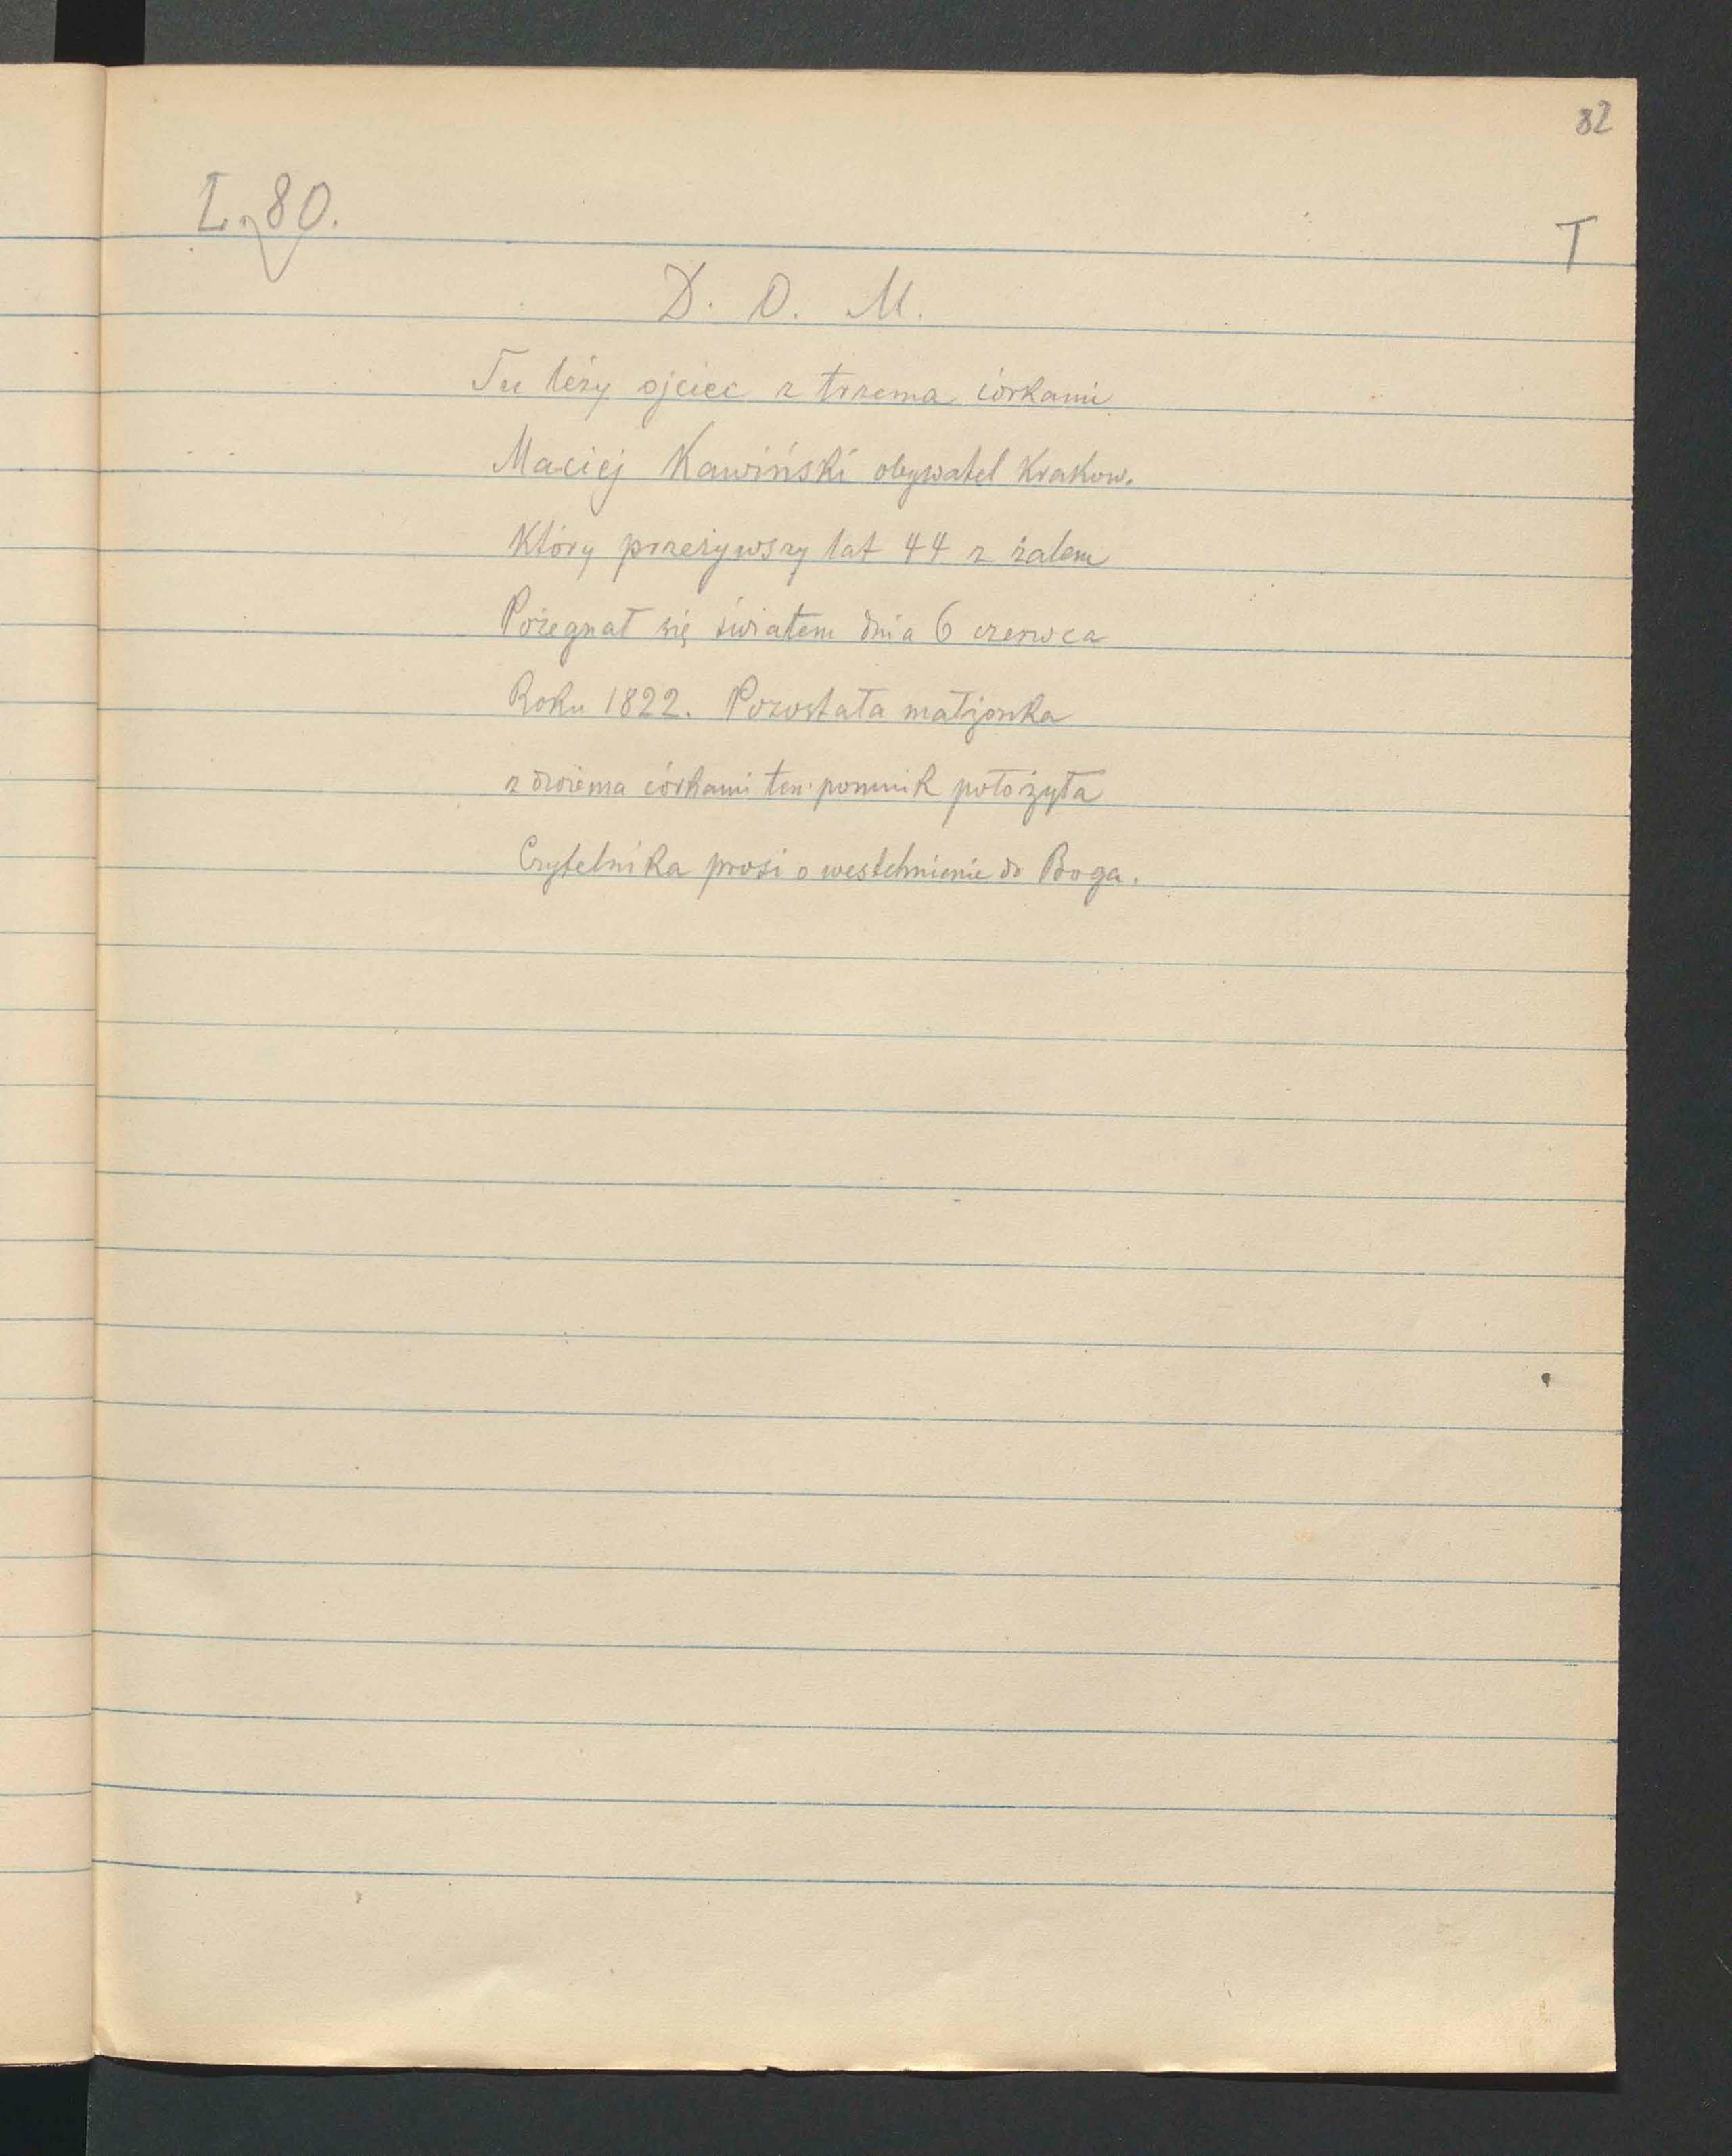 82
L. 80.
T
D. O. M.
Tu leży ojciec z trzema córkami
Maciej Kawiński obywatel Krakow.
Który przeżywszy lat 44 z żalem
Pożegnał się światem dnia 6 czerwca
Roku 1822. Pozostała małżonka
z dwiema córkami ten pomnik położyła
Czytelnika prosi o westchnienie do Boga.